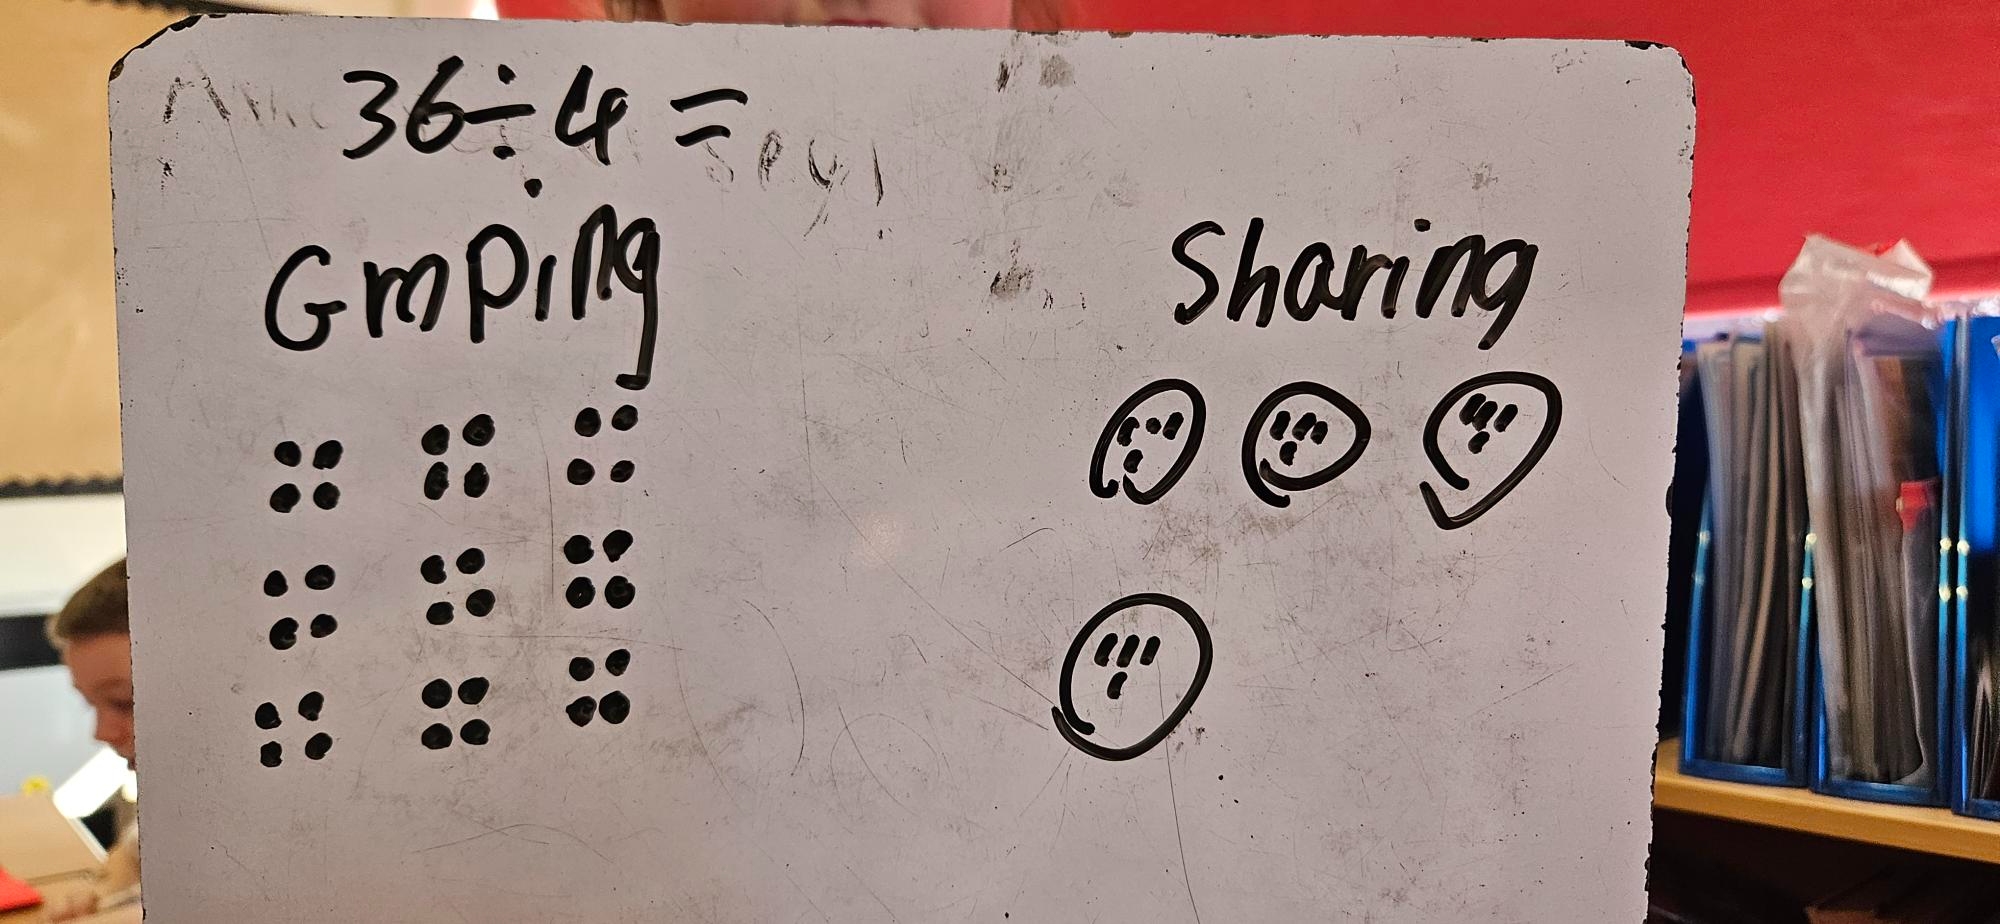 36÷4=
Gmping
Sharing